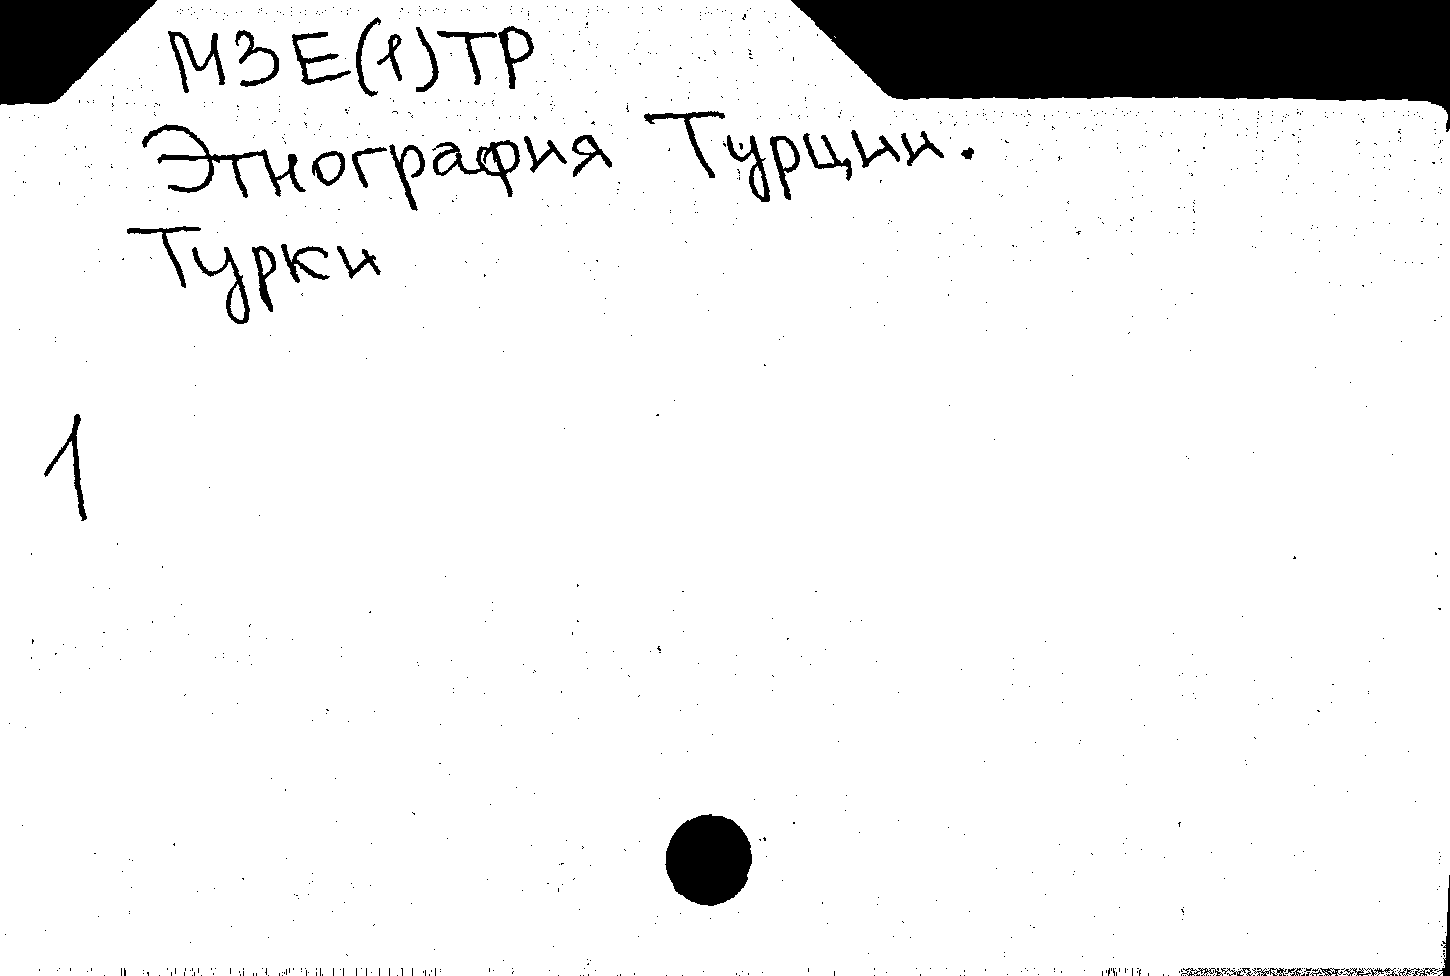 МЗЕ(1)ТР
Этнография Турции.
Турки
1